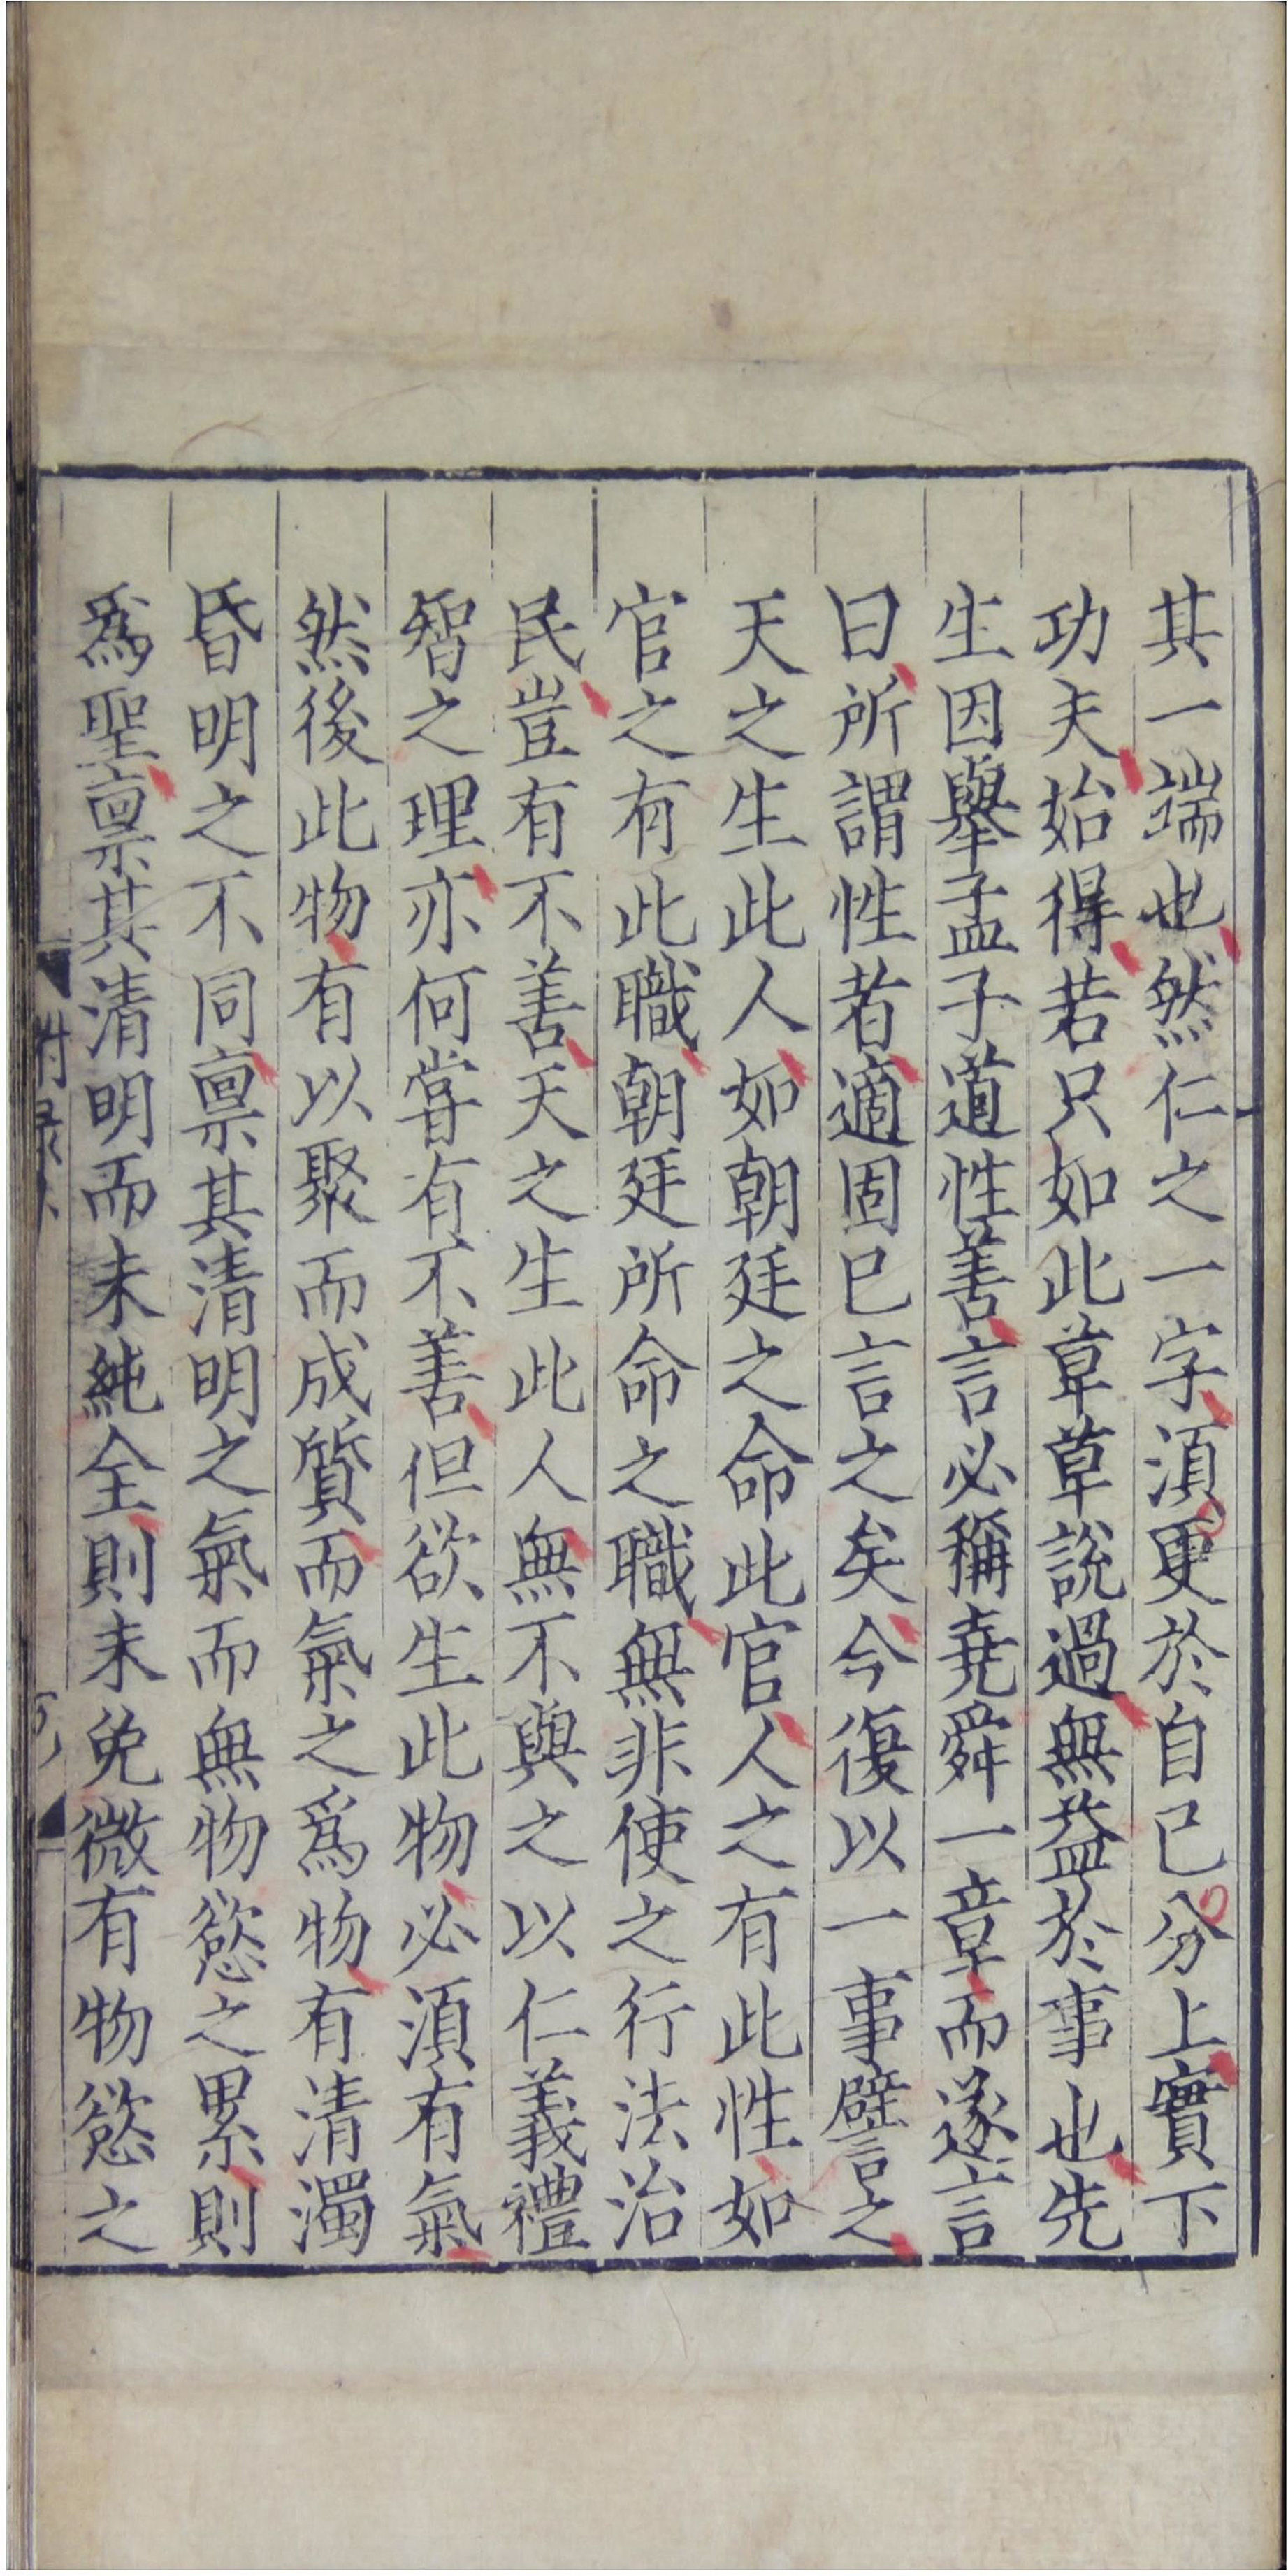 其一端也然仁之一字湏更於自已分上實下
功夫始得若只如此草草說過無益於事也先
生因舉孟子道性善言必稱堯舜一章而遂言
曰所謂性者適固已言之矣今復以一事譬之
天之生此人如朝廷之命此官人之有此性如
官之有此職朝廷所命之職無非使之行法治
民豈有不善天之生此人無不與之以仁義禮
智之理亦何嘗有不善但欲生此物必湏有氣
然後此物有以聚而成質而氣之爲物有清濁
昏明之不同禀其清明之氣而無物慾之累則
爲聖禀其清明而未純全則未免微有物慾之